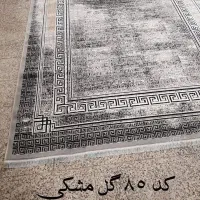 کد ۸۵ گل مشکی